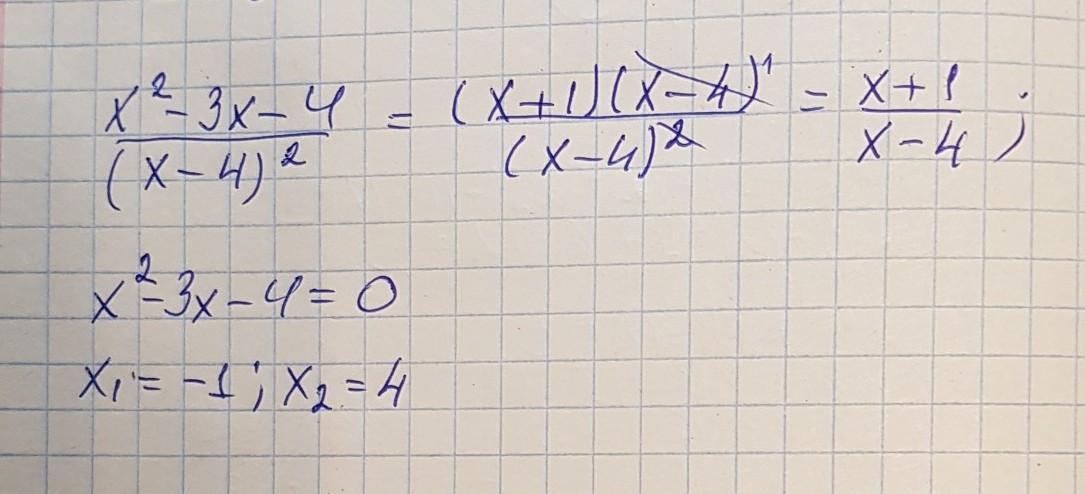 x² - 3x - 4 / (x - 4)² = (x + 1)(x - 4)¹ / (x - 4)² = x + 1 / x - 4 ;
x² - 3x - 4 = 0
x₁ = -1 ; x₂ = 4